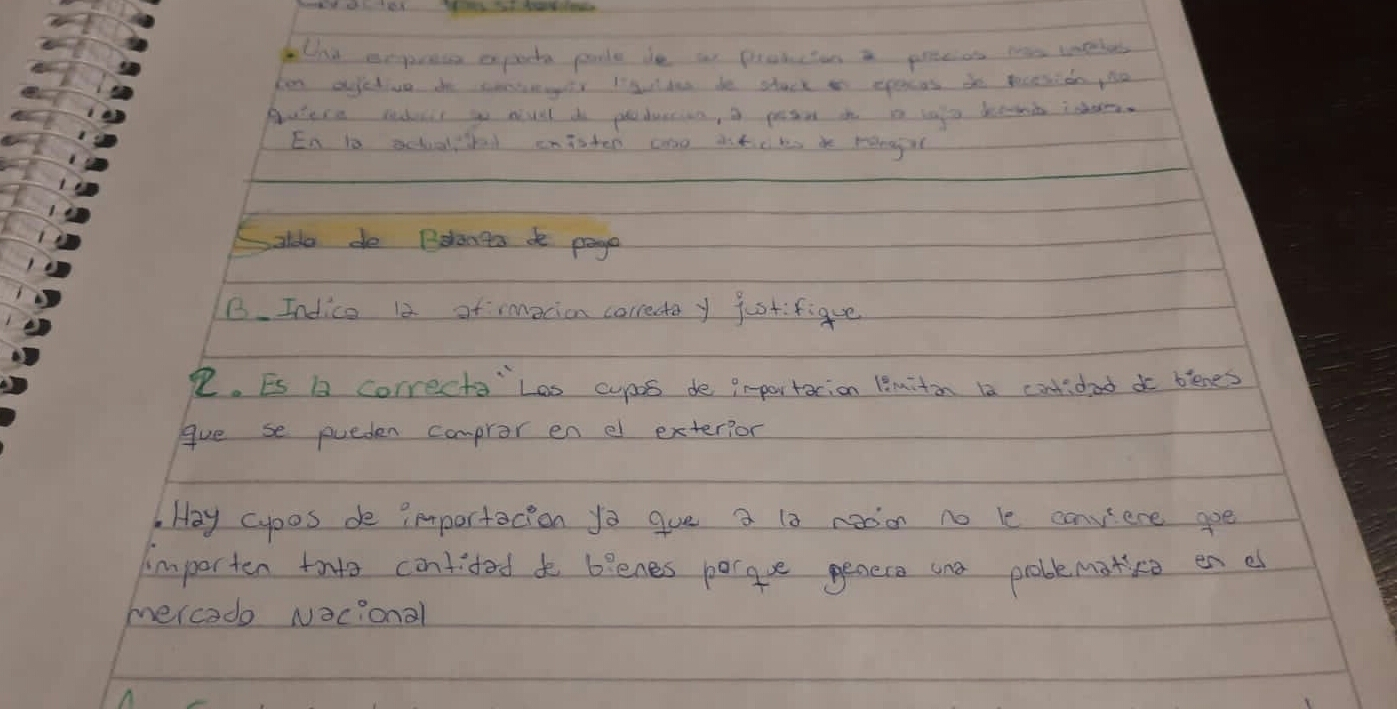 Una empresa exporta parte de su producion a precios mas
con objetivo de conseguir de stock en epocas de recesión, no
quiere reducir su nivel de produccion, a pesar de la baja demanda interna.
En la actualidad existen caso dificiles de manejar
Saldo de Balanza de pago
B_ Indica la afirmacion correcta y justifique
2. Es la correcta " Los cupos de importacion limitan la cantidad de bienes
que se pueden comprar en el exterior
. Hay cupos de importacion ya que a la nacion no le conviene que
importen tanta cantidad de bienes porque genera una problematica en el
mercado Nacional